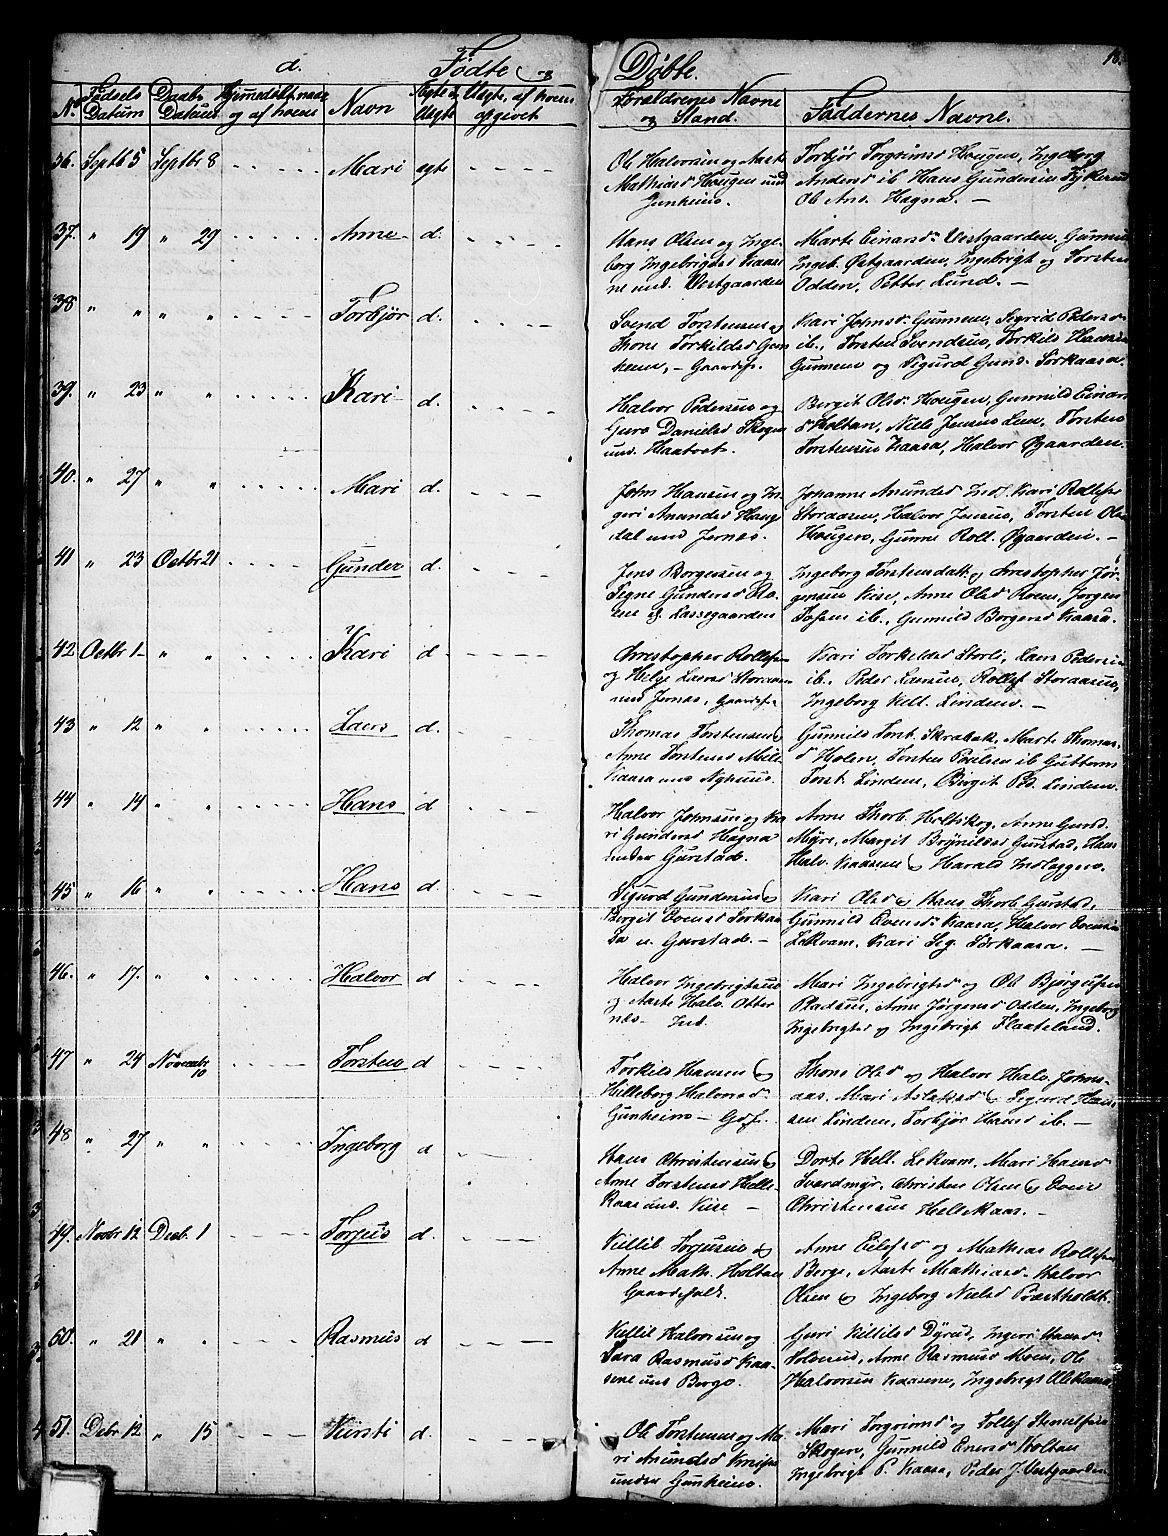 d. Fødte og Døbte. 18.
No. Fødsels Datum Daabs Datum Hjemedøbt, naar og af hvem Navn Ægte el. Uægte Uægte, af hvem opgivet Forældrenes Navne og Stand. Faddernes Navne.
36. Septb 5 Septbr 8 Mari egte
Ole Halvorsen og Aaste
Mathisd Hougen und
Gunheim.
Torbjør Torgrimsd Hougen, Ingeborg
Andersd ib. Hans Gundersen
Ol. Ans. Hagna. —
37. " 19 " 29 Anne d.
Hans Olsen og Inge-
borg Ingebrigtsd Kaase-
ne und. Vestgaarden
Marte Einarsd. Vestgaarden, Gunnu
Ingeb. Østgaarden, Ingebrigt og Torsten
Odden, Petter Lund. —
38 " " " " Torbjør d.
Svend Torstensen og
Thone Torkildsd Gun-
heim, — Gaardf.
Kari Johnsd. Gunnem, Sigrid Pedersd
ib., Torsten Svendsen, Torkild Hansen
Gunnem og Sigurd Gund. Sørkaasa.
39. " 23 " " Kari d.
Halvor Pedersen og
Guro Danielsd Skogen
und. Haatvet.
Bergit Olsd. Hougen, Gunnild Einar
sd Holtan, Niels Jensen Lien, Torsten
Torstensen Kaasa, Halvor Øgaarden.
40. " 27 " " Mari d.
John Hansen og In-
geri Anundsd Houg
dal und Jernæs.
Johanne Anundsd Ind. Kari Rollefsd
Storaasen, Halvor Jensen, Torsten Ols
Hougen, Gunne Roll. Øgaarden. —
41 " 23 Octbr 21 Gunder d.
Jens Borgersen og
Signe Gundersd Ro-
ene af Lassegaarden
Ingeborg Torstensdatt. og Christopher Jør-
gensen Vise, Anne Olsd Roen, Jørgen
Tofsen ib., Gunnild Borgersd Kaasa.
42 Octbr 1- " " Kari d
Christopher Rollefsen
og Helge Larsd Storaasen
und Jernæs, Gaardf.
Kari Torkildsd Storli, Lars Pedersen
ib. Peder Larsen, Rollef Storaasen,
Ingeborg Kell. Linden. —
43 " 12 " " Lars d.
Thomas Torstensen og
Anne Torstensd Mele
Kaasa und Nyhuus.
Gunnild Torst. Skrakak, Marte Thomas-
d Holen, Torsten Poulsen ib Guttorm
Torst. Linden, Birgit Ped. Linden.
44 " 14 " " Hans d
Halvor Johnsen og Ka-
ri Gundersd Hagna
under Gurstad.
Anne Thorb. Holtskog, Anne Gund.
Myre, Margit Brynildsd Gurstad, Hans
Halv. Kaasen og Harald Indlaggen.
45 " 16 " " Hans d.
Sigurd Gundersen og
Bergit Evensd Sørkaa-
sa u. Gurstad. —
Kari Olsd og Hans Thorb Gurstad,
Gunnild Evensd. Kaasa, Halvor Evensen
Lekvam, Kari Sig. Sørkaasa. —
46. " 17. " " Halvor d
Halvor Ingebrigtsen
og Aaste Halv. Otter
næs — Ind.
Mari Ingebrigtsd og Ole Bjørgufsen
Pladsen, Anne Jørgensd Odden, Ingeborg
Ingebrigtsd og Ingebrigt Flaateland.
47 " 24 Novembr 10 Torsten d
Torkild Hansen og
Hilleborg Halvorsd
Gunheim — Gdf.
Thone Olsd og Halvor Halv. Johns-
aas, Mari Aslaksd og Sigurd Han-
sen Linden, Torbjør Hansd ib. —
48 " 27 " " Ingeborg d
Hans Christensen og
Anne Torstensd Helle-
kaas und. Vise —
Dorte Hell. Lekvam, Mari Hansd
Sværdmyr, Christen Olsen og Even
Christensen Hellekaas. —
49. Novbr 12 Decb. 1 Torjus d.
Kittil Torjusen og
Anne Math. Holtan
Gaardsfolk.
Anne Eilefsd og Mathias Rollefsen
Berge, Aaste Mathiasd. Halvor
Olsen og Ingeborg Nielsd Præstholdt.
50. " 21 " " Rasmus d
Kittil Halvorsen og
Sara Rasmusd Kaa-
sene und Berge.
Guri Kittilsd Dyrud, Ingeri Hansd.
Holerud, Anne Rasmusd Moen, Ole
Halvorsen Kaasene, Ingebrigt Ols Kaasa
51. Decbr 12 " 15 Kirsti d.
Ole Torstensen og Ma-
ri Anundsd
under Gunheim.
Mari Torgrimsd og Tollef Stenulfsen
Skogen, Gunnild Enersd Holtan
Ingebrigt P. Kaasa, Peder J. Vestgaarden